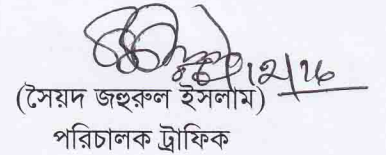 (সৈয়দ জহুরুল ইসলাম)
পরিচালক ট্রাফিক